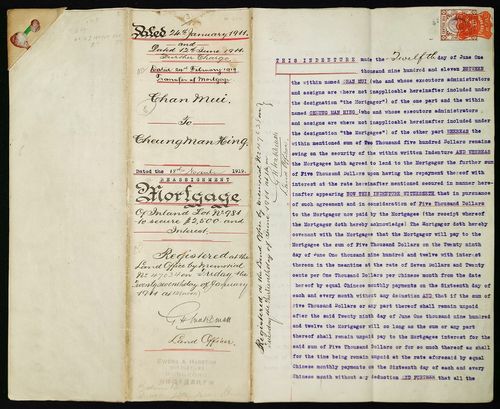 Dated 24th January 1911.
and
Dated 12th June 1911.
Further Charge
Dated 20th February 1919
Transfer of Mortgage
Chan Mui.
To
Cheung Man Hing.
Dated the 1919.
REASSIGNMENT
Mortgage
Of Inland Lot No 981
to secure $2,500 and
Interest.
Registered at the
Land Office by Memorial
No 47024 on Monday the
Twenty seventh day of January
1911
Land Officer.
EWENS &
SOLICITORS
HONGKONG
Registered at the Land Office by Memorial No
Land Officer.
THIS INDENTURE made the Twelfth day of June One
thousand nine hundred and eleven BETWEEN
the within named CHAN MUI (who and whose executors administrators
and assigns are where not inapplicable hereinafter included under
the designation "the Mortgagor") of the one part and the within
named CHEUNG MAN HING (who and whose executors administrators
and assigns are where not inapplicable hereinafter included under
the designation "the Mortgagee") of the other part WHEREAS the
within mentioned sum of Two thousand five hundred Dollars remains
owing on the security of the within written Indenture AND WHEREAS
the Mortgagee hath agreed to lend to the Mortgagor the further sum
of Five Thousand Dollars upon having the repayment thereof with
interest at the rate hereinafter mentioned secured in manner herein-
inafter appearing NOW THIS INDENTURE WITNESSETH that in pursuance
of such agreement and in consideration of Five Thousand Dollars
to the Mortgagor now paid by the Mortgagee (the receipt whereof
the Mortgagor doth hereby acknowledge) The Mortgagor doth hereby
covenant with the Mortgagee that the Mortgagor will pay to the
Mortgagee the sum of Five Thousand Dollars on the Twenty ninth
day of June One thousand nine hundred and twelve with interest
thereon in the meantime at the rate of seven Dollars and Twenty
cents per One Thousand Dollars per Chinese month from the date
hereof by equal Chinese monthly payments on the Sixteenth day of
each and every month without any deduction AND that if the sum
of Five Thousand Dollars or any part thereof shall remain unpaid
after the said Twenty ninth day of June One thousand nine hundred
and twelve the Mortgagor will so long as the sum or any part
thereof shall remain unpaid pay to the Mortgagee interest for the
said sum of Five Thousand Dollars or for so much thereof as shall
for the time being remain unpaid at the rate aforesaid by equal
Chinese monthly payments on the Sixteenth day of each and every
Chinese month without any deduction AND FURTHER that all the